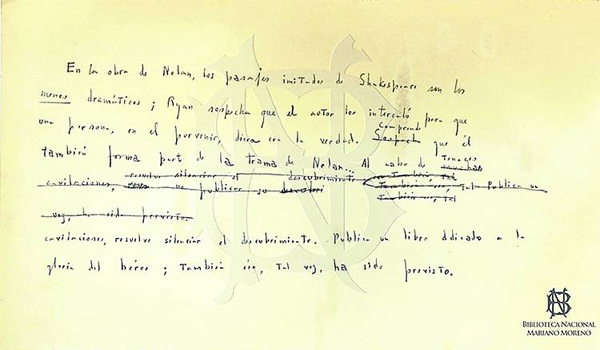 En la obra de Nolan, los pasajes imitados de Shakespeare son los
menos dramáticos; Ryan sospecha que el autor los intercaló para que
una persona, en el porvenir, diera con la verdad. Sospech Comprende que él
también forma part de la trama de Nolan... Al cabo de muchas tenaces
cavilaciones, resuelve silenciar el descubrimiento también eso, tal
no publicar su descubri También eso, tal Publica un
También eso, tal
vez, ha sido previsto.
cavilaciones, resuelve silenciar el descubrimiento. Publica un libro ddicado a la
gloria del héroe; también eso, tal vez, ha sido previsto.
BIBLIOTECA NACIONAL
MARIANO MORENO